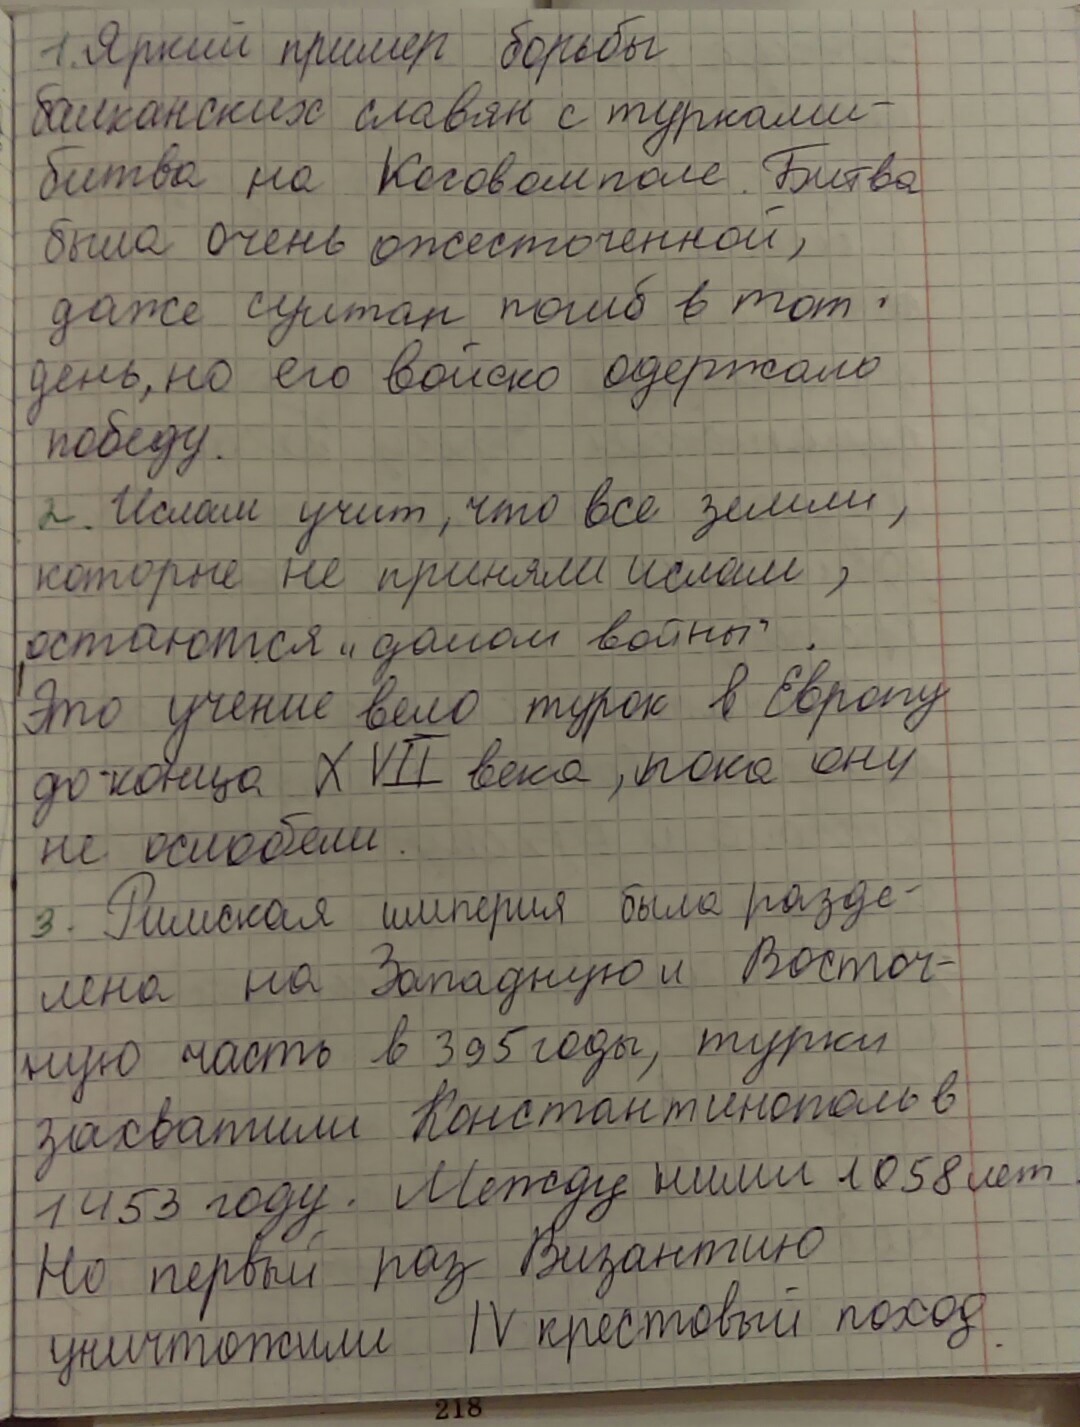 1. Яркий пример борьбы
балканских славян с турками-
битва на Косовомполе. Битва
была очень ожесточенной,
даже султан погиб в тот
день, но его войско одержало
победу.
2. Ислам учит, что все земли,
которые не приняли ислам,
остаются „домом войны".
Это учение вело турок в Европу
до конца XVII века, пока они
не ослабели.
3. Римская империя была разде-
лена на Западную и Восточ-
ную часть в 395 годы, турки
захватили Константинополь в
1453 году. Между ними 1058 лет.
Но первый раз Византию
уничтожили IV крестовый поход.
218